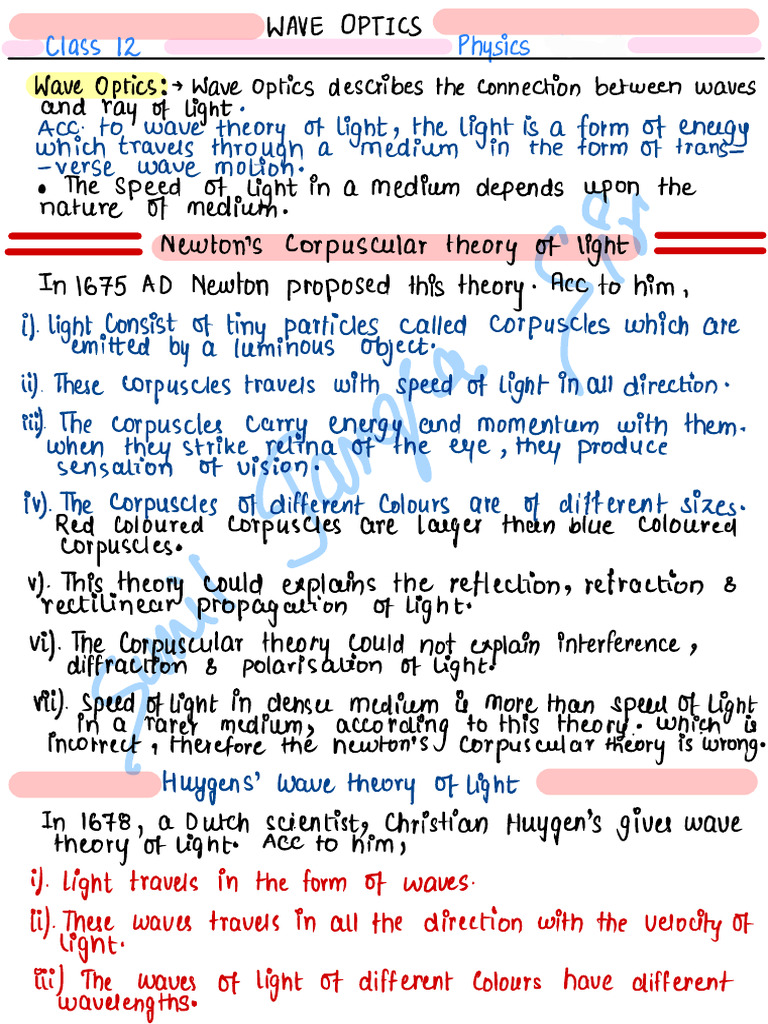 WAVE OPTICS
Class 12 Physics
Wave Optics:→ Wave Optics describes the connection between waves
and ray of light.
Acc. to wave theory of light, the light is a form of energy
which travels through a medium in the form of trans-
-verse wave motion.
• The speed of light in a medium depends upon the
nature of medium.
Newton's Corpuscular theory of light
In 1675 AD Newton proposed this theory. Acc to him,
i). light Consist of tiny particles called corpuscles which are
emitted by a luminous object.
ii). These corpuscles travels with speed of light in all direction.
iii). The corpuscles carry energy and momentum with them.
when they strike retina of the eye, they produce
sensation of vision.
iv). The Corpuscles of different Colours are of different sizes.
Red Coloured corpuscles are larger than blue coloured
corpuscles.
v). This theory could explains the reflection, refraction &
rectilinear propagation of light.
vi). The Corpuscular theory could not explain interference,
diffraction & polarisation of light.
vii). Speed of light in denser medium is more than speed of light
in a rarer medium, according to this theory. which is
incorrect, therefore the newton's Corpuscular theory is wrong.
Huygens' wave theory of light
In 1678, a Dutch scientist, Christian Huygen's gives wave
theory of light. Acc to him,
i). Light travels in the form of waves.
ii). These waves travels in all the direction with the velocity of
light.
iii) The waves of light of different Colours have different
wavelengths.
Sunil Jangra Sir